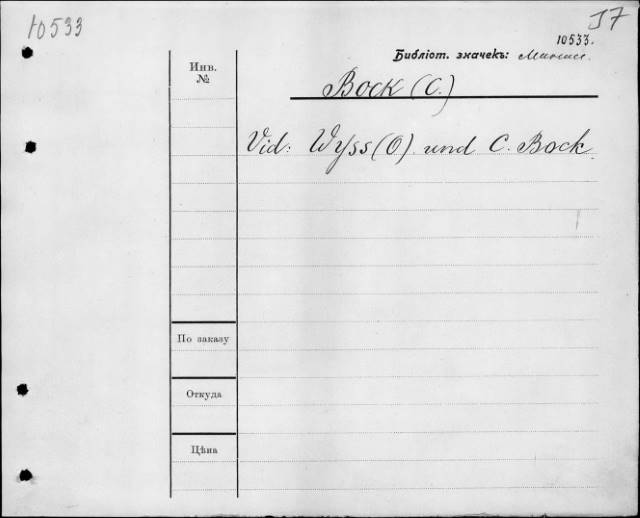 10533
J7
10533.
Библіот. значекъ:
Инв.
№
Bock (C.)
Vid: Wyss (O) und C. Bock.
По заказу
Откуда
Цѣна